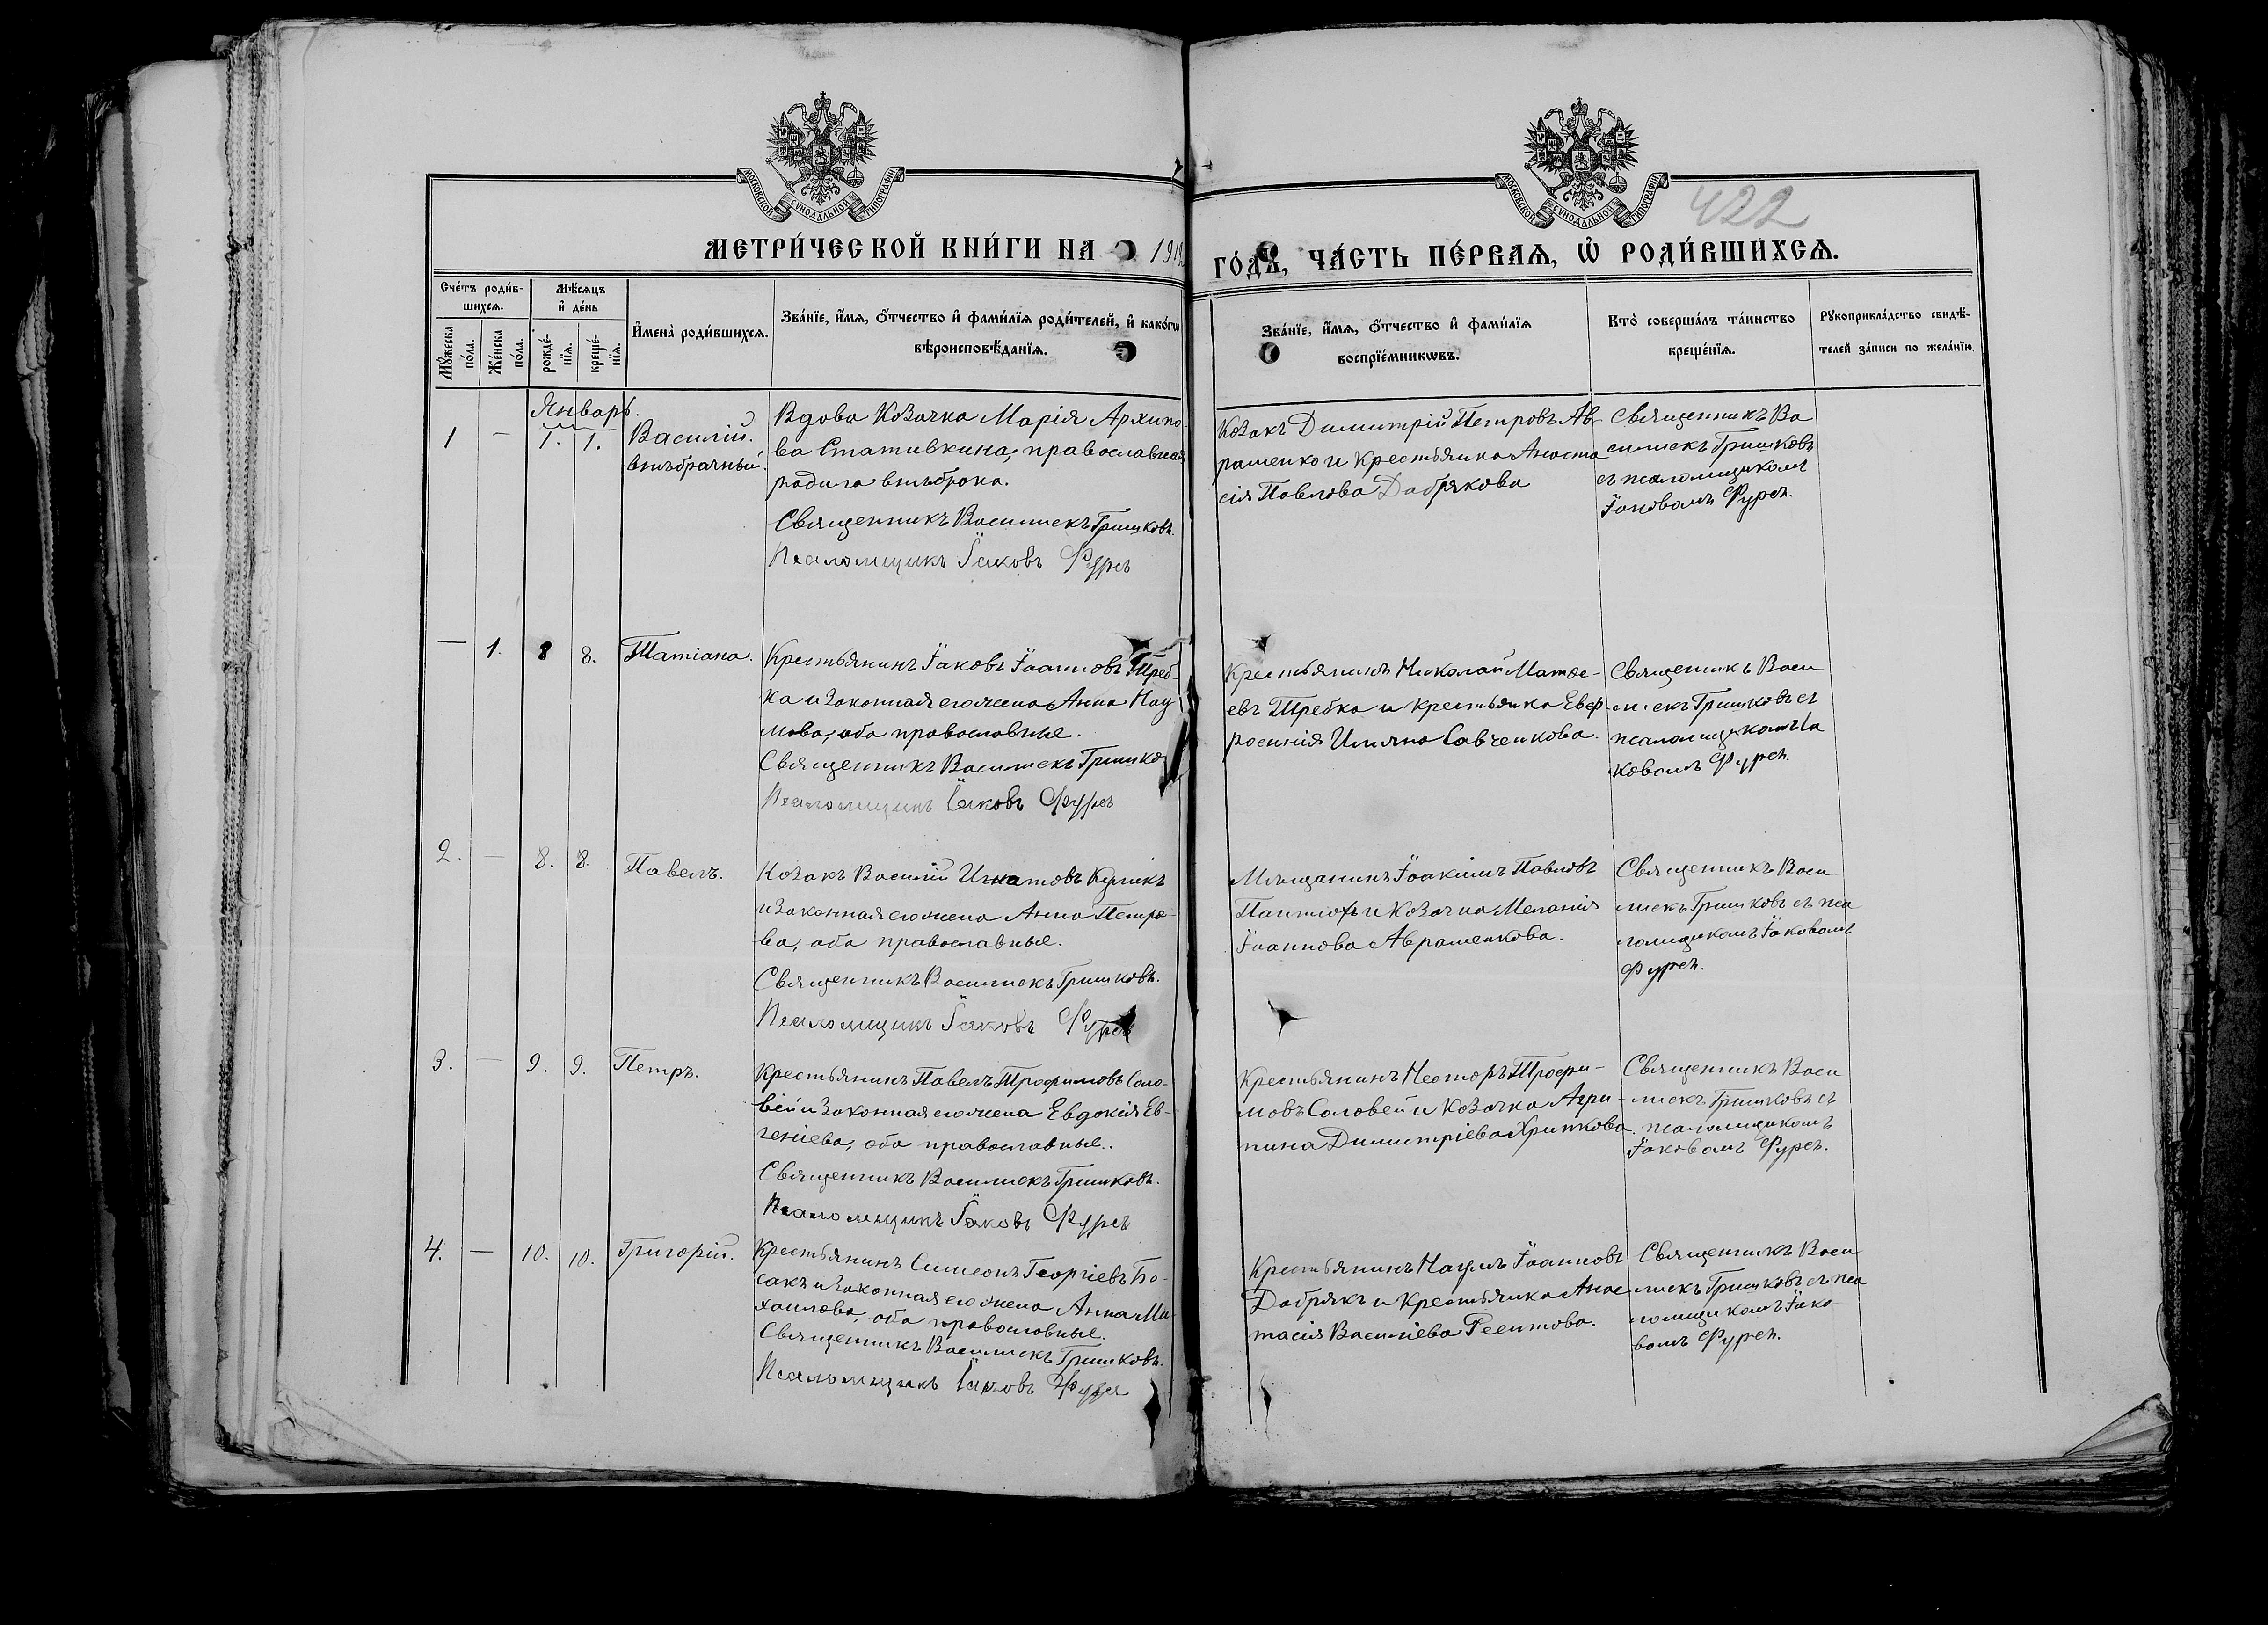 МОСКОВСКОЙ СУНОДАЛЬНОЙ ТИПОГРАФІИ
МОСКОВСКОЙ СУНОДАЛЬНОЙ ТИПОГРАФІИ
422
МЕТРИ́ЧЕСКОЙ КНИ́ГИ НА 1912
ГО́ДЪ, ЧА́СТЬ ПЕ́РВАѦ, Ѡ҆ РОДИ́ВШИХСѦ.
Сче́тъ роди́в-
шихсѧ.
Мꙋ́жеска
по́ла.
Же́нска
по́ла.
Мѣ́сѧцъ
и҆ де́нь
рожде́-
нїѧ.
креще́-
нїѧ.
И҆мена̀ роди́вшихсѧ.
Зва́нїе, и҆́мѧ, ѻ҆́тчество и҆ фами́лїѧ роди́телей, и҆ како́гѡ
вѣроисповѣ́данїѧ.
Зва́нїе, и҆́мѧ, ѻ҆́тчество и҆ фами́лїѧ
воспрїе́мникѡвъ.
Кто̀ соверша́лъ та́инство
креще́нїѧ.
Рꙋкоприкла́дство свидѣ́-
телей за́писи по жела́нїю.
Январь.
1 — 1. 1. Василій.
внѣбрачный.
Вдова Козачка Марія Архипо-
ва Стативкина, православная,
родила внѣ брака.
Священникъ Василискъ Гришковъ.
Псаломщикъ Іаковъ Фурсъ
Козакъ Димитрій Петровъ Ав-
раменко и Крестьянка Анаста
сія Павлова Добрякова
Священникъ Ва
силискъ Гришковъ
съ псаломщикомъ
Іаковомъ Фурсъ.
— 1. 8 8. Татіана.
Крестьянинъ Іаковъ Іоанновъ Треб-
ка и законная его жена Анна Нау
мова, оба православные.
Священникъ Василискъ Гришко
Псаломщикъ Іаковъ Фурсъ
Крестьянинъ Николай Матѳе-
евъ Требка и крестьянка Евф
росинія Савченкова.
Священникъ Васи
лискъ Гришковъ съ
псаломщикомъ Іа
ковомъ Фурсъ.
2. — 8. 8. Павелъ.
Козакъ Василій Игнатовъ Куликъ
и законная его жена Анна Петро-
ва, оба православные.
Священникъ Василискъ Гришковъ.
Псаломщикъ Іаковъ Фурсъ
Мѣщанинъ Іоакимъ Павловъ
и Козачка Меланія
Іоаннова Авраменкова.
Священникъ Васи
лискъ Гришковъ съ пса
ломщикомъ Іаковомъ
Фурсъ.
3. — 9. 9. Петръ.
Крестьянинъ Павелъ Трофимовъ Соло-
вей и законная его жена Евдокія Ев-
геніева, оба православные.
Священникъ Василискъ Гришковъ.
Псаломщикъ Іаковъ Фурсъ
Крестьянинъ Несторъ Трофи-
мовъ Соловей и Козачка Агри-
пина Димитріева
Священникъ Васи
лискъ Гришковъ съ
псаломщикомъ
Іаковомъ Фурсъ.
4. — 10. 10. Григорій.
Крестьянинъ Симеонъ Георгіевъ Бо-
сакъ и законная его жена Анна Ми-
хаилова, оба православные.
Священникъ Василискъ Гришковъ.
Псаломщикъ Іаковъ Фурсъ
Крестьянинъ Наумъ Іоанновъ
Добрякъ и Крестьянка Анас
тасія Василіева
Священникъ Васи
лискъ Гришковъ съ пса
ломщикомъ Іако-
вомъ Фурсъ.